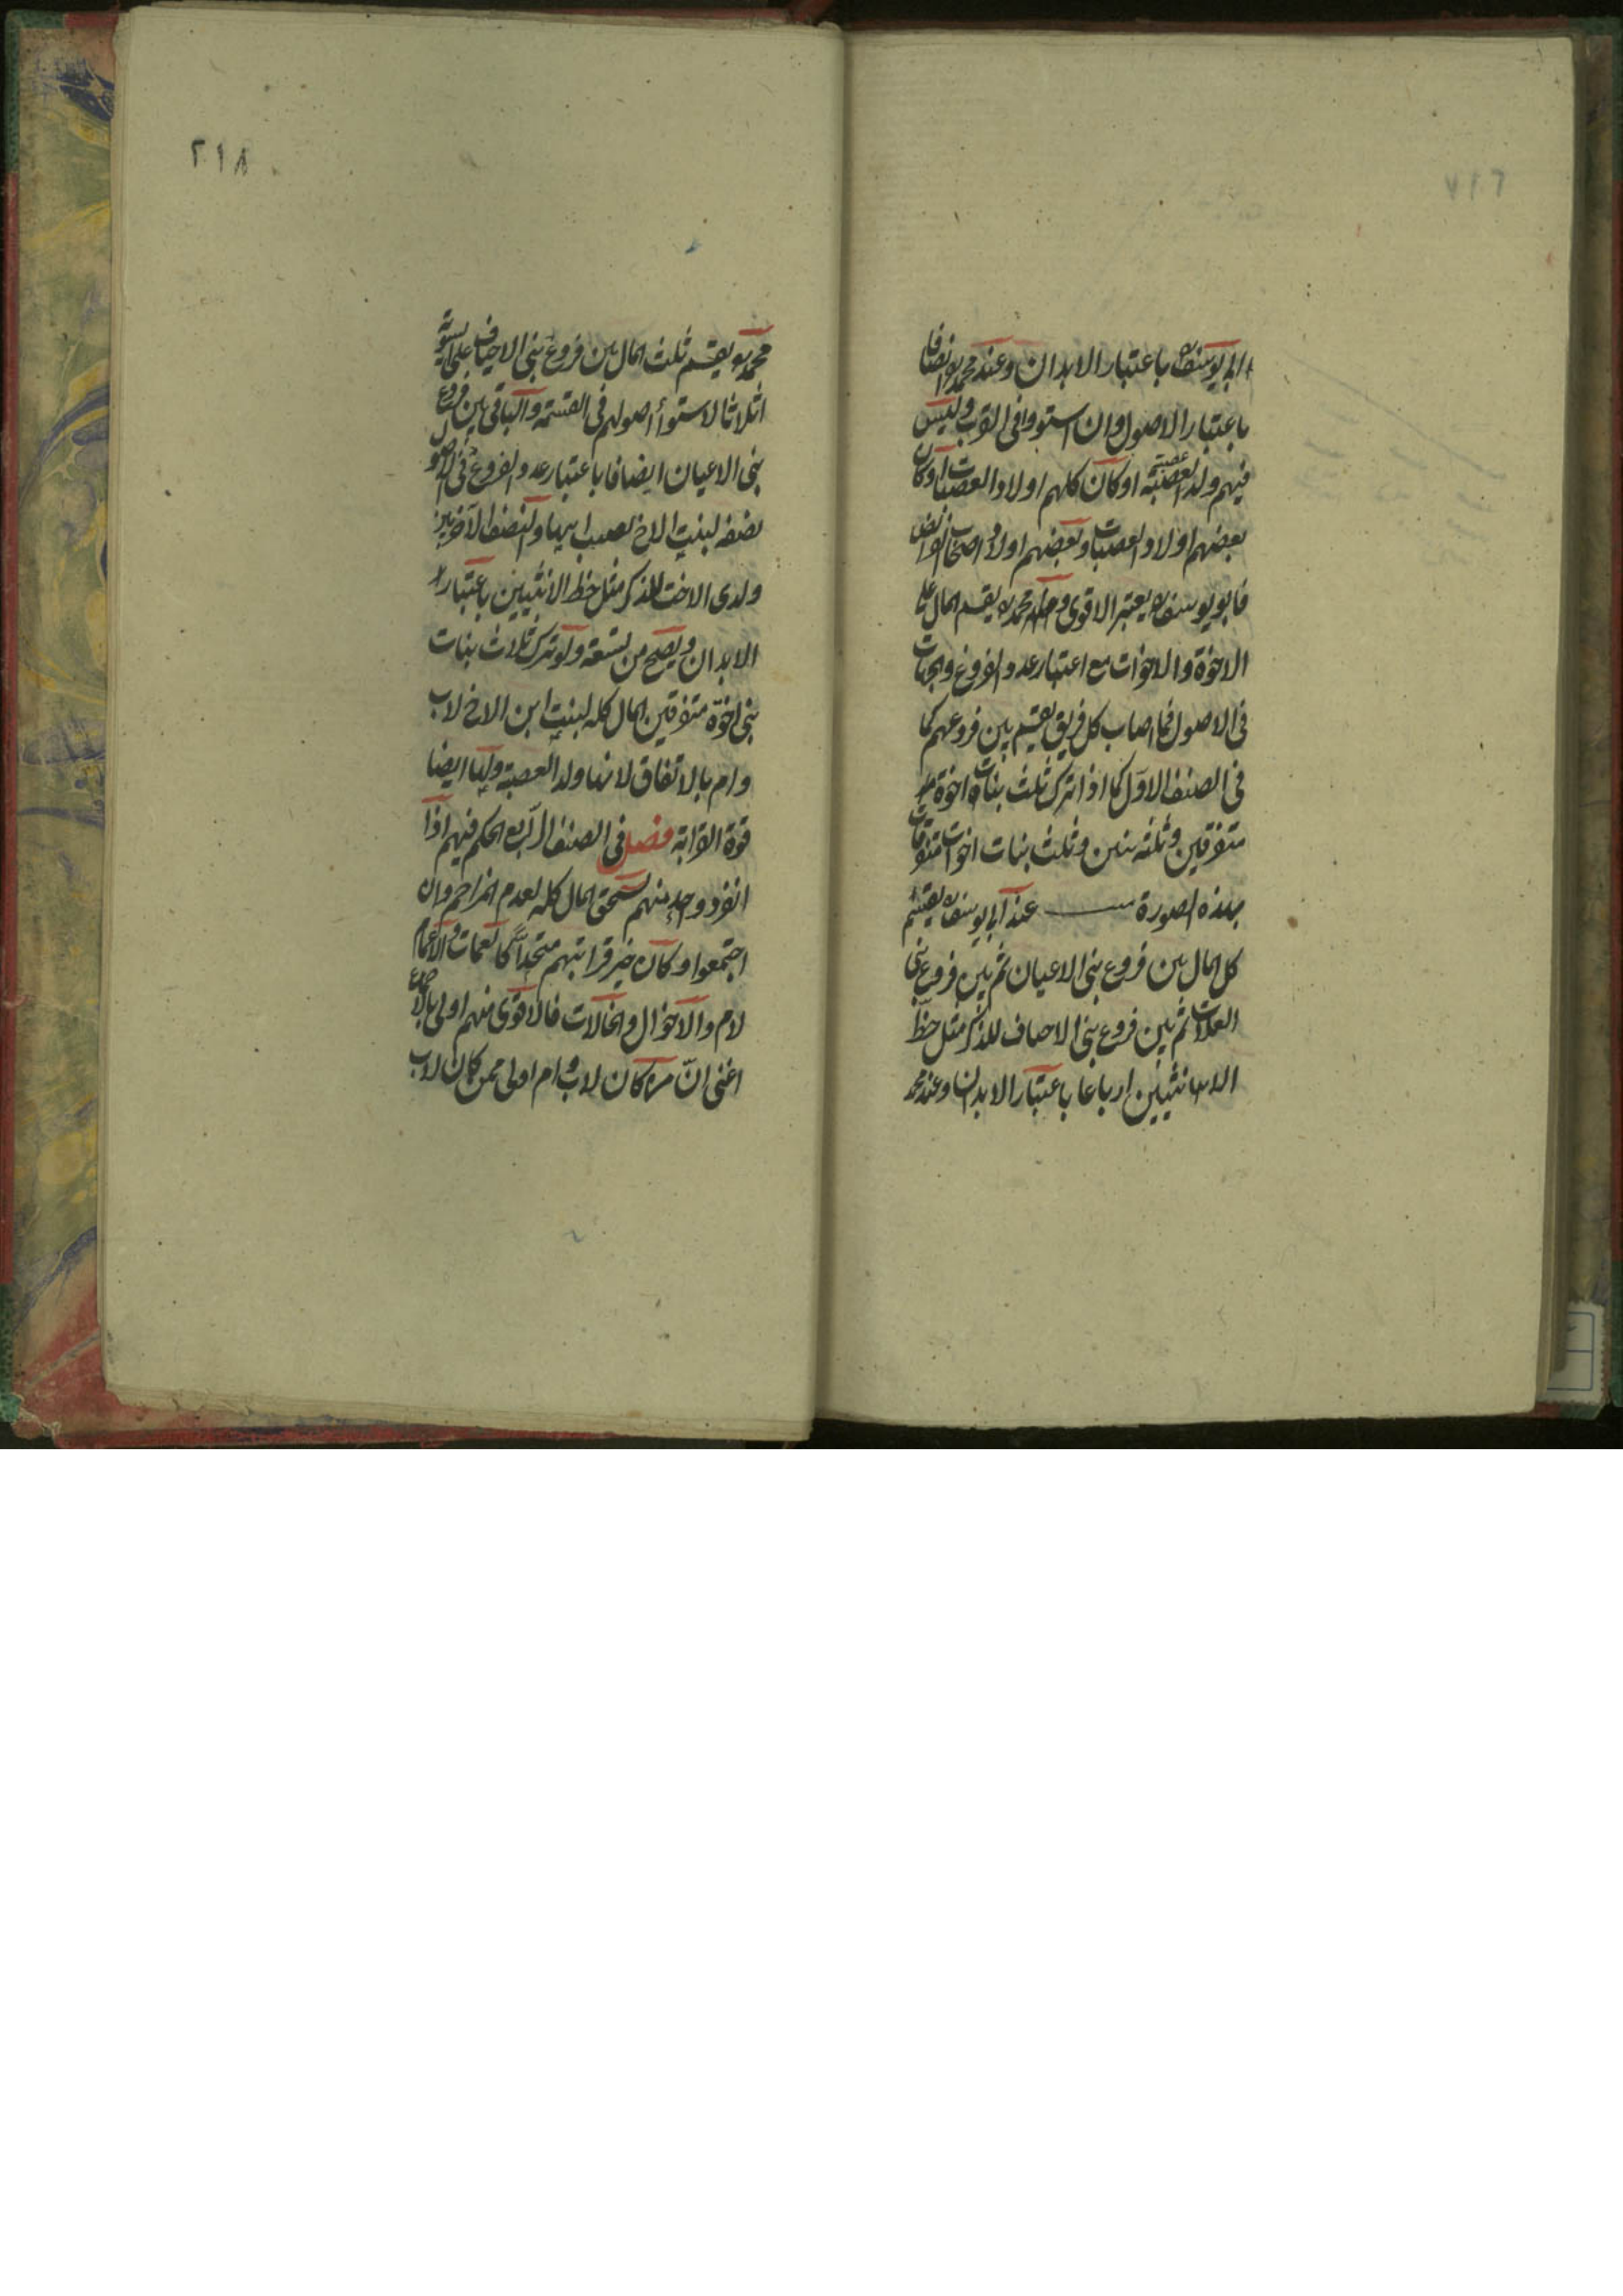 ٢١٧
ابى يوسف ره باعتبار الابدان وعند محمد ره انصافا
باعتبار الاصول وان استووا فى القرب وليس
فيهم ولد العصبة عصبته او كان كلهم اولاد العصبات او كان
بعضهم اولاد العصبات وبعضهم اولاد اصحاب الفرائض
فابو يوسف ره يعتبر الاقوى ومحمد ره يقسم المال على
الاخوة والاخوات مع اعتبار عدد الفروع والجهات
فى الاصول فما اصاب كل فريق يقسم بين فروعهم كما
فى الصنف الاول كما اذا ترك ثلث بنات اخوة
متفرقين وثلثه بنين وثلث بنات اخوات متفرقات
بهذه الصورة عند ابى يوسف ره يقسم
كل المال بين فروع بنى الاعيان ثم بين فروع بنى
العلات ثم بين فروع بنى الاخياف للذكر مثل حظ
الانثيين ارباعا باعتبار الابدان وعند محمد
٢١٨
محمد ره يقسم ثلث المال بين فروع بنى الاخياف على السوية
اثلاثا لاستواء اصولهم فى القسمة والباقى بين فروع
بنى الاعيان انصافا باعتبار عدد الفروع فى الاصول
نصفه لبنت الاخ نصيب ابيها والنصف الآخر بين
ولدى الاخت للذكر مثل حظ الانثيين باعتبار
الابدان ويصح من تسعة ولو ترك ثلاث بنات
بنى اخوة متفرقين المال كله لبنت ابن الاخ لاب
وام بالاتفاق لانها ولد العصبة ولها ايضا
قوة القرابة فصل فى الصنف الرابع الحكم فيهم اذا
انفرد واحد منهم استحق المال كله لعدم المزاحم وان
اجتمعوا وكان حيز قرابتهم متحدا كالعمات والاعمام
لام والاخوال والخالات فالاقوى منهم اولى بالاجماع
اعنى ان من كان لاب وام اولى ممن كان لاب